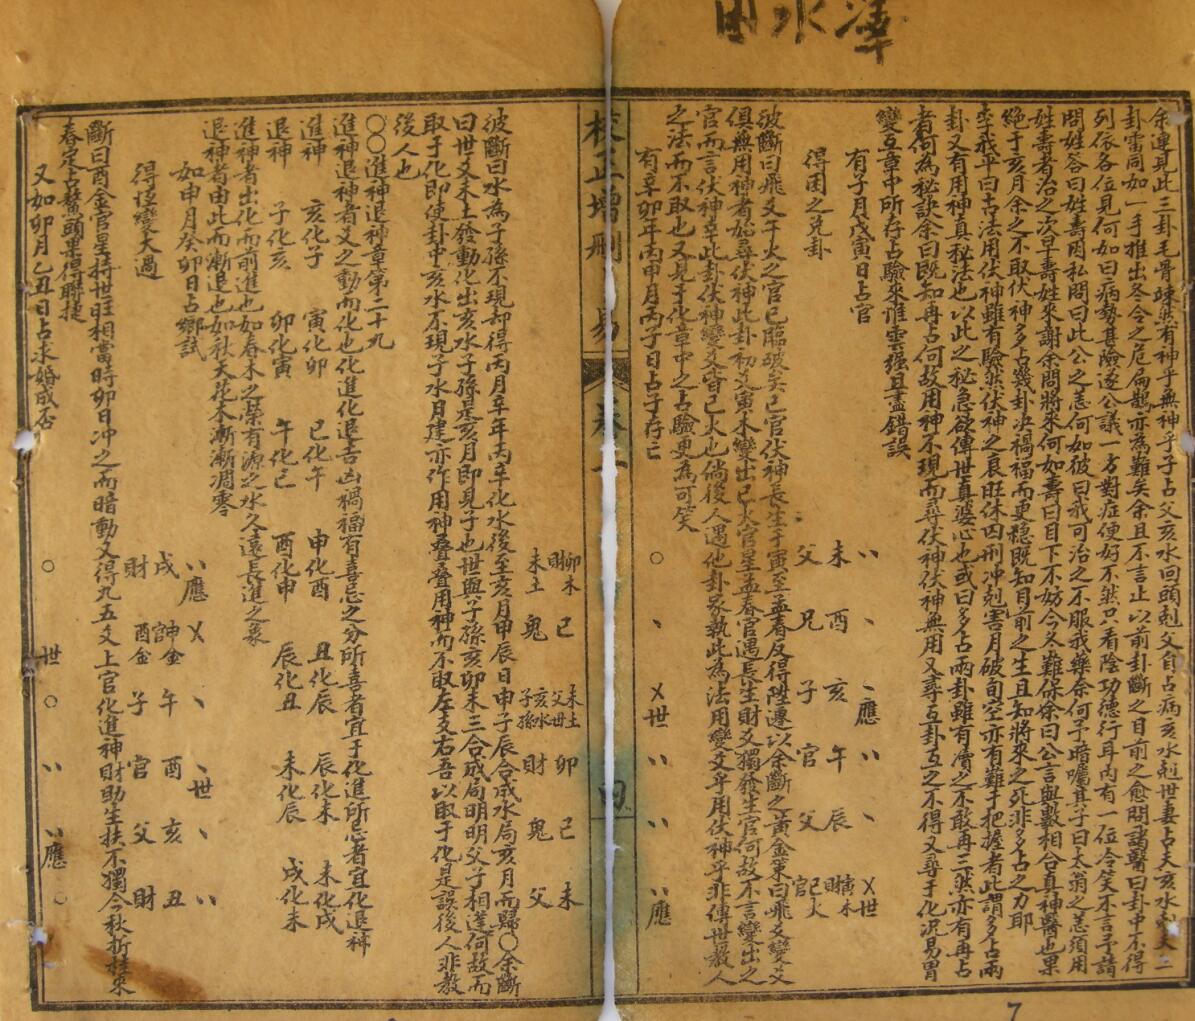 澤水困
余連見此三卦毛骨竦然有神乎無神乎子占父亥水回頭剋父自占病亥水剋世妻占夫亥水剋夫三
卦雷同如一手推出冬令之危扁鵲亦為難矣余且不言止以前卦斷之目前之愈問諸醫曰卦中不得
列依各位見何如曰病勢甚險遂公議一方對症便好不然只看陰功德行耳內有一位冷笑不言予請
問姓答曰姓壽因私問曰此公之恙何如彼曰我可治之不服我藥余何予暗囑其子曰太翁之恙須用
姓壽者治之次早壽姓來謝余問將來何如壽曰目下不妨今冬難保余曰公言與數相合真神醫也果
絕于亥月余之不取伏神多多占幾卦決禍福而更穩既知目前之生且知將來之死非多占之力耶
李我平曰古法用伏神雖有驗然伏神之衰旺休囚刑冲剋害月破旬空亦有難于把握者此謂多多占兩
卦又有用神真秘法也以此之秘急欲傳世真婆心也或曰多占兩卦雖有瀆之不敢再三然亦有再占
者何為秘訣余曰既知再占何故用神不現而尋伏神伏神無用又尋互卦互之不得又尋于化況易冒
變互章中所存占驗來雖靈強且盡錯誤
有子月戊寅日占官
得困之兌卦
未 酉 亥 午 辰 寅木
父 兄 子 官 父 財 官巳火
應 世
彼斷曰飛爻午火之官已臨破矣巳官伏神長生于寅至孟春反得陞遷以余斷之黃金策曰飛爻變爻
俱無用神者始尋伏神此卦初爻寅木變出巳火官星孟春官遇長生財爻獨發生官何故不言變出之
官而言伏神幸此卦伏神變爻皆巳火也倘後人遇他卦豕執此為法用變爻乎用伏神乎非傳世教人
之法而不取也又見于化章中之占驗更為可笑
有辛卯年丙申月丙子日占子存亡
世 應
校正增刪卜易
四
卯木 巳 未土 卯 巳 未
財未土 鬼 父世亥水子孫 財 鬼 父
彼斷曰水為子孫不現却得丙月辛年丙辛化水後至亥月甲辰日申子辰合成水局亥月而歸○余斷
曰世爻未土發動化出亥水子孫是亥月即見子也世與子孫亥卯未三合成局明明父子相逢何故而
取于化即使卦中亥水不現子水月建亦作用神疊疊用神而不取左支右吾以取于化是誤後人非教
後人也
○○進神退神章第二十九
進神退神者爻之動而化也化進化退吉凶禍福有喜忌之分所喜者宜于化進所忌者宜化退神
進神 亥化子 寅化卯 巳化午 申化酉 丑化辰 辰化未 未化戌
退神 子化亥 卯化寅 午化巳 酉化申 辰化丑 未化辰 戌化未
進神者出化而前進也如春木之榮有源之水久遠長進之象
退神者由此而漸退也如秋天花木漸漸凋零
如申月癸卯日占鄉試
得恒變大過
應 世
戌 申金 午 酉 亥 丑
財 酉金 子 官 父 財
斷曰酉金官星持世旺相當時卯日冲之而暗動又得九五爻上官化進神財助生扶不獨今秋折桂來
春定占鰲頭果得聯捷
又如卯月乙丑日占求婚成否
世 應
7